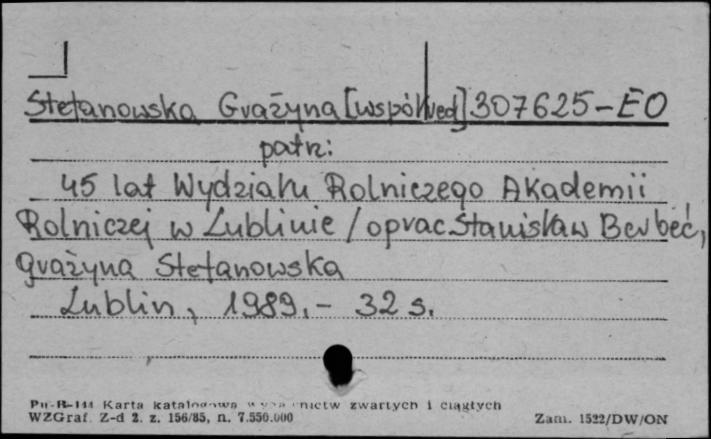 Stefanowska Grażyna [współred] 307625-EO
patrz:
45 lat Wydziału Rolniczego Akademii
Rolniczej w Lublinie / oprac. Stanisław Berbeć,
Grażyna Stefanowska
Lublin, 1989. - 32 s.
Pu-R-144 Karta katalogowa wydawnictw zwartych i ciągłych
WZGraf. Z-d 2. z. 156/85, n. 7.550.000
Zam. 1522/DW/ON